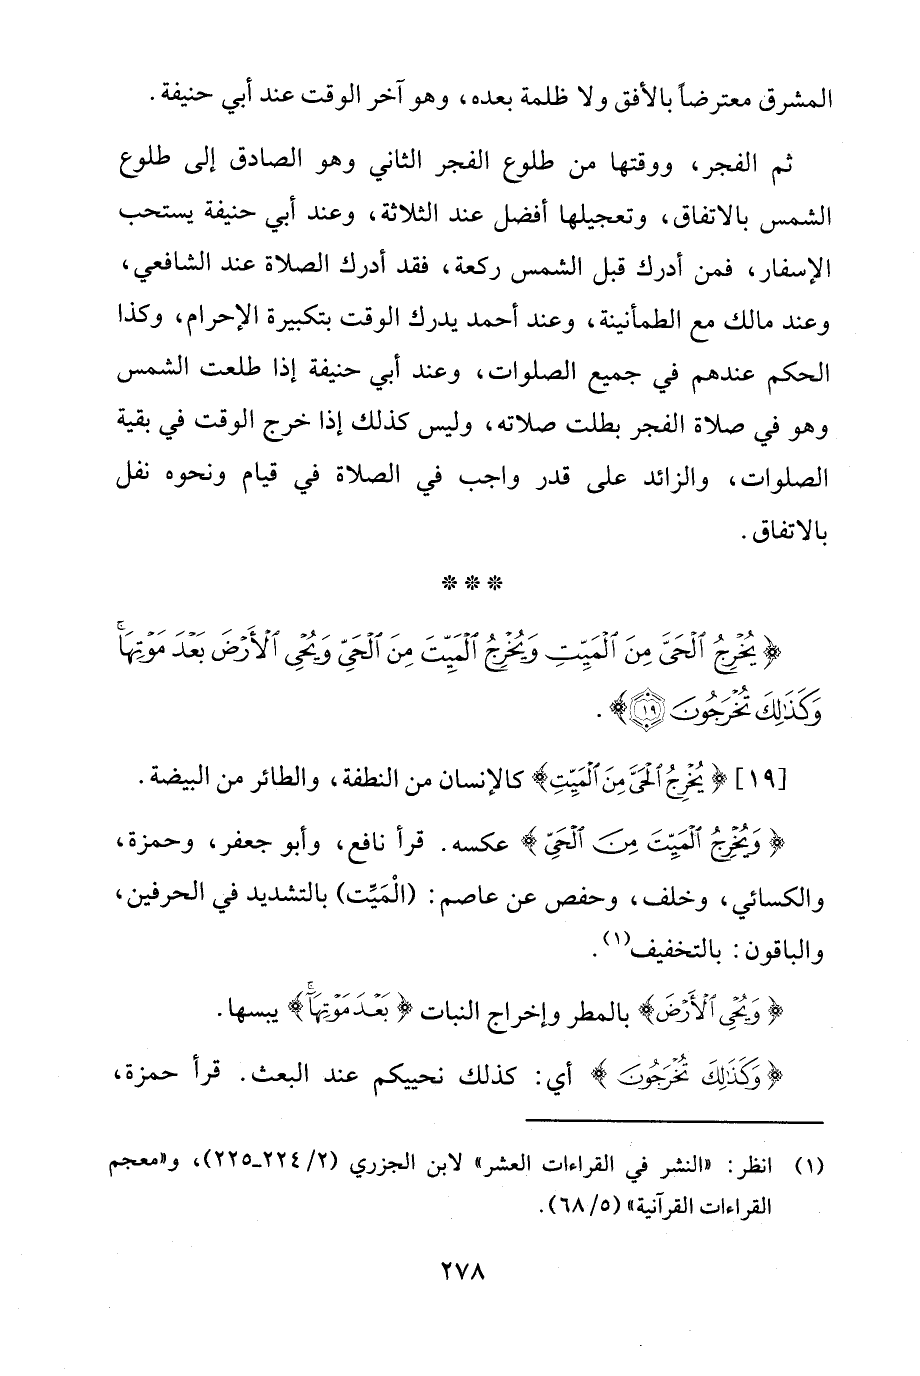 المشرق معترضاً بالأفق ولا ظلمة بعده، وهو آخر الوقت عند أبي حنيفة.
ثم الفجر، ووقتها من طلوع الفجر الثاني وهو الصادق إلى طلوع
الشمس بالاتفاق، وتعجيلها أفضل عند الثلاثة، وعند أبي حنيفة يستحب
الإسفار، فمن أدرك قبل الشمس ركعة، فقد أدرك الصلاة عند الشافعي،
وعند مالك مع الطمأنينة، وعند أحمد يدرك الوقت بتكبيرة الإحرام، وكذا
الحكم عندهم في جميع الصلوات، وعند أبي حنيفة إذا طلعت الشمس
وهو في صلاة الفجر بطلت صلاته، وليس كذلك إذا خرج الوقت في بقية
الصلوات، والزائد على قدر واجب في الصلاة في قيام ونحوه نفل
بالاتفاق.
***
﴿يُخْرِجُ ٱلْحَىَّ مِنَ ٱلْمَيِّتِ وَيُخْرِجُ ٱلْمَيِّتَ مِنَ ٱلْحَىِّ وَيُحْىِ ٱلْأَرْضَ بَعْدَ مَوْتِهَاۚ
وَكَذَٰلِكَ تُخْرَجُونَ ١٩﴾.
[١٩] ﴿يُخْرِجُ ٱلْحَىَّ مِنَ ٱلْمَيِّتِ﴾ كالإنسان من النطفة، والطائر من البيضة.
﴿وَيُخْرِجُ ٱلْمَيِّتَ مِنَ ٱلْحَىِّ﴾ عكسه. قرأ نافع، وأبو جعفر، وحمزة،
والكسائي، وخلف، وحفص عن عاصم: (الْمَيِّت) بالتشديد في الحرفين،
والباقون: بالتخفيف(١).
﴿وَيُحْىِ ٱلْأَرْضَ﴾ بالمطر وإخراج النبات ﴿بَعْدَ مَوْتِهَاۚ﴾ يبسها.
﴿وَكَذَٰلِكَ تُخْرَجُونَ﴾ أي: كذلك نحييكم عند البعث. قرأ حمزة،
(١) انظر: «النشر في القراءات العشر» لابن الجزري (٢/ ٢٢٤-٢٢٥)، و«معجم
القراءات القرآنية» (٥/ ٦٨).
٢٧٨